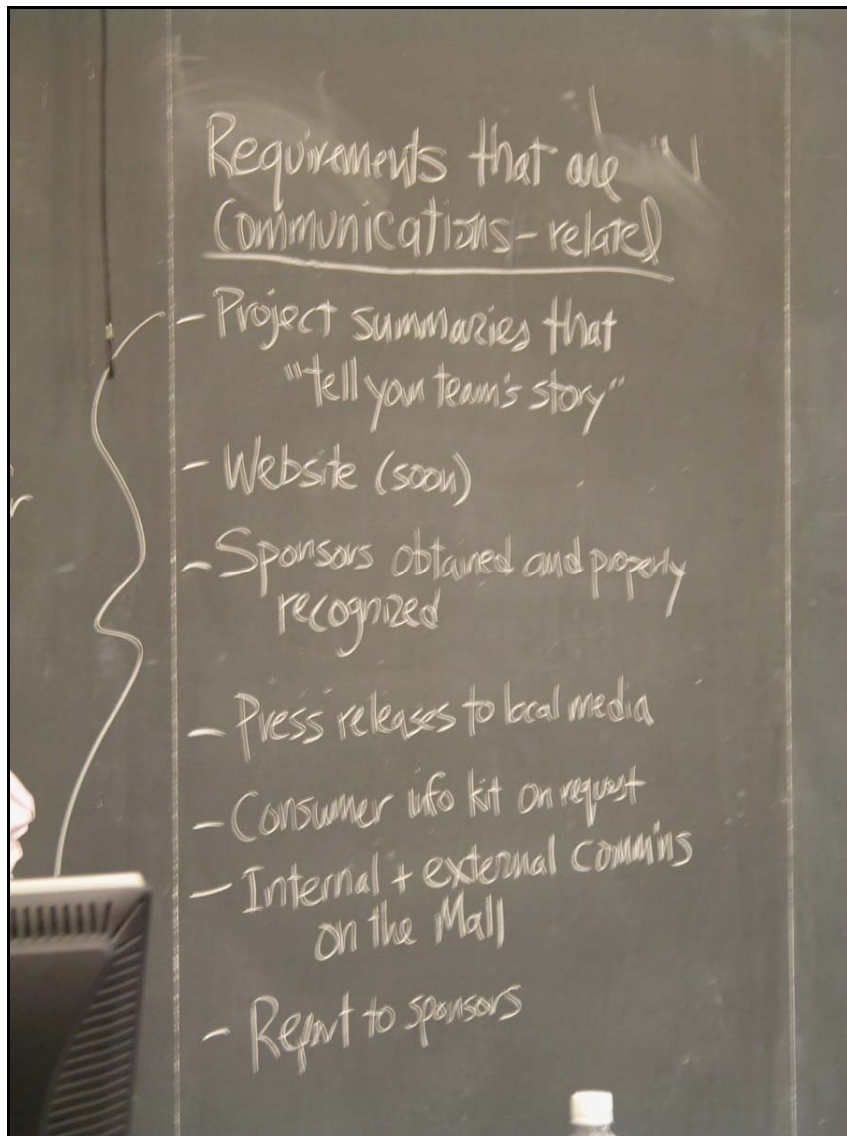 Requirements that are
Communications-related
- Project summaries that
"tell your team's story"
- Website (soon)
- Sponsors obtained and properly
recognized
- Press releases to local media
- Consumer info kit on request
- Internal + external commins
on the Mall
- Report to sponsors